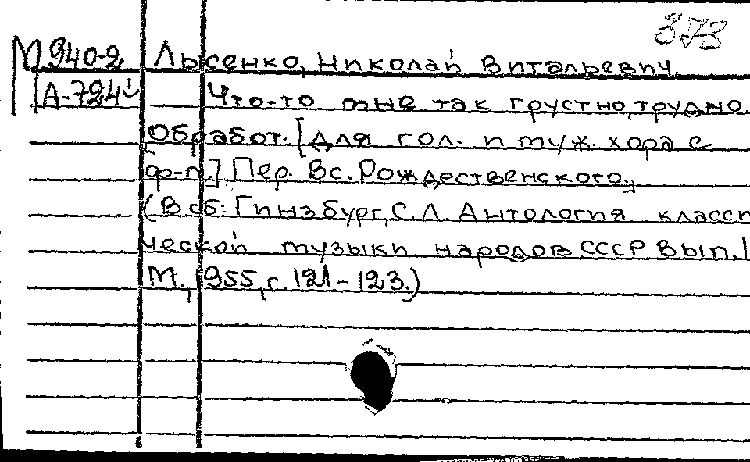 373
М940-2 Лысенко, Николай Витальевич.
А-724 Что-то мне так грустно, трудно.
Обработ. [для гол. и муж. хора с
ф-п.] Пер. Вс. Рождественского.,
(В сб: Гинзбург, С.Л. Антология класси
ческой музыки народов СССР Вып.1
М., 1955, с. 121-123.)